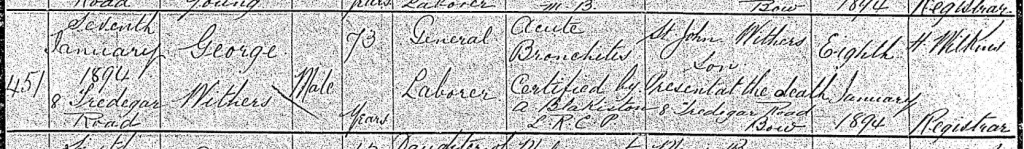 Road Young years Laborer M.B. Bow 1894 Registrar
451
Seventh
January
1894
8 Tredegar
Road
George
Withers
Male
73
Years
General
Laborer
Acute
Bronchitis
Certified by
A Blakiston
L.R.C.P.
St John Withers
Son
Present at the death
8 Tredegar Road
Bow
Eighth
January
1894
H Wilkins
Registrar
Daughter of